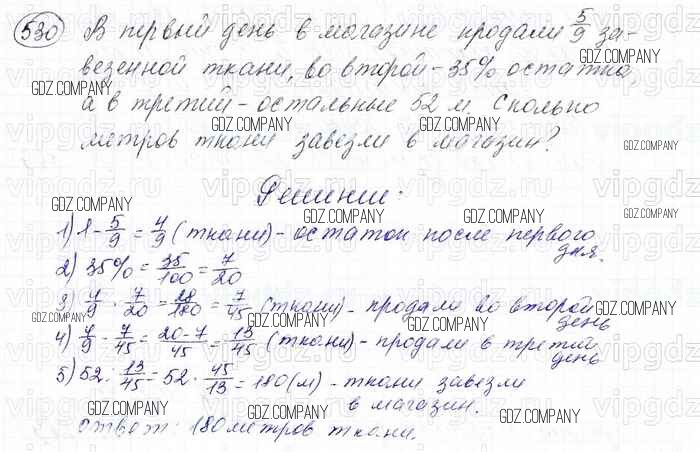 530 В первый день в магазине продали 5/9 за-
везенной ткани, во второй - 35% остатка,
а в третий - остальные 52 м. Сколько
метров ткани завезли в магазин?
Решение:
1) 1 - 5/9 = 4/9 (ткани) - остаток после первого
дня.
2) 35% = 35/100 = 7/20
3) 4/9 · 7/20 = 28/180 = 7/45 (ткани) - продали во второй
день
4) 4/9 - 7/45 = 20-7/45 = 13/45 (ткани) - продали в третий
день
5) 52 : 13/45 = 52 · 45/13 = 180 (м) - ткани завезли
в магазин.
Ответ: 180 метров ткани.
GDZ.COMPANY
vipgdz